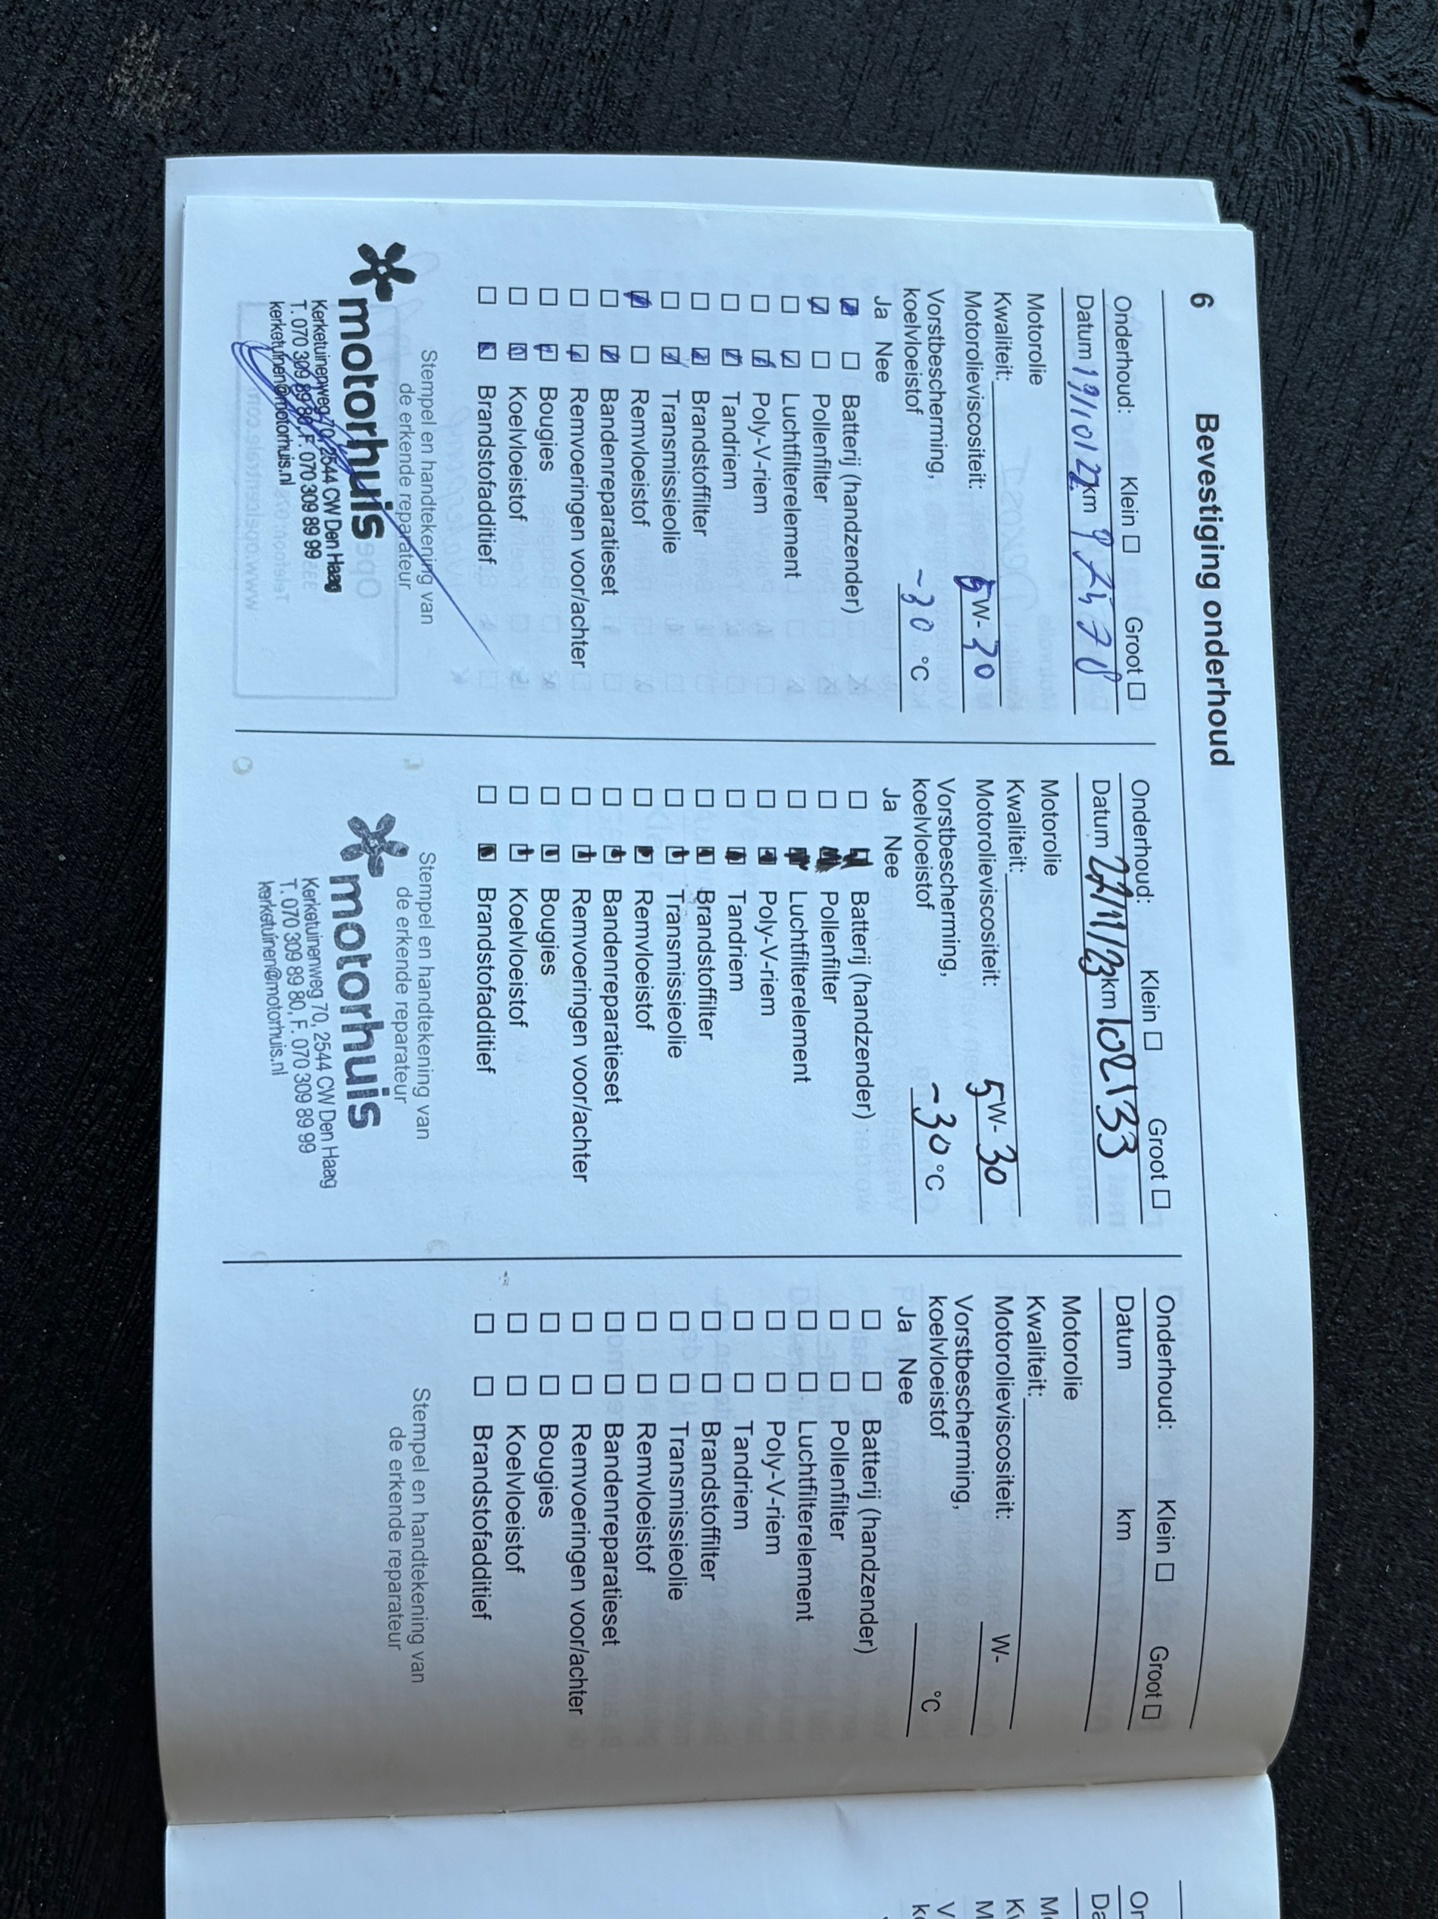 6 Bevestiging onderhoud
Onderhoud: Klein ☐ Groot ☐
Datum 19/10/22 km 97578
Motorolie
Kwaliteit:
Motorolieviscositeit: 5 W- 30
Vorstbescherming,
koelvloeistof -30 °C
Ja Nee
☑ ☐ Batterij (handzender)
☑ ☐ Pollenfilter
☐ ☑ Luchtfilterelement
☐ ☑ Poly-V-riem
☐ ☑ Tandriem
☐ ☑ Brandstoffilter
☐ ☑ Transmissieolie
☑ ☐ Remvloeistof
☐ ☑ Bandenreparatieset
☐ ☑ Remvoeringen voor/achter
☐ ☑ Bougies
☐ ☑ Koelvloeistof
☐ ☑ Brandstofadditief
Stempel en handtekening van
de erkende reparateur
motorhuis
Kerketuinenweg 70, 2544 CW Den Haag
T. 070 309 89 80, F. 070 309 89 99
kerketuinen@motorhuis.nl
Onderhoud: Klein ☐ Groot ☐
Datum 22/11/23 km 102133
Motorolie
Kwaliteit:
Motorolieviscositeit: 5 W- 30
Vorstbescherming,
koelvloeistof -30 °C
Ja Nee
☐ ☑ Batterij (handzender)
☐ ☑ Pollenfilter
☐ ☑ Luchtfilterelement
☐ ☑ Poly-V-riem
☐ ☑ Tandriem
☐ ☑ Brandstoffilter
☐ ☑ Transmissieolie
☐ ☑ Remvloeistof
☐ ☑ Bandenreparatieset
☐ ☑ Remvoeringen voor/achter
☐ ☑ Bougies
☐ ☑ Koelvloeistof
☐ ☑ Brandstofadditief
Stempel en handtekening van
de erkende reparateur
motorhuis
Kerketuinenweg 70, 2544 CW Den Haag
T. 070 309 89 80, F. 070 309 89 99
kerketuinen@motorhuis.nl
Onderhoud: Klein ☐ Groot ☐
Datum km
Motorolie
Kwaliteit:
Motorolieviscositeit: W-
Vorstbescherming,
koelvloeistof °C
Ja Nee
☐ ☐ Batterij (handzender)
☐ ☐ Pollenfilter
☐ ☐ Luchtfilterelement
☐ ☐ Poly-V-riem
☐ ☐ Tandriem
☐ ☐ Brandstoffilter
☐ ☐ Transmissieolie
☐ ☐ Remvloeistof
☐ ☐ Bandenreparatieset
☐ ☐ Remvoeringen voor/achter
☐ ☐ Bougies
☐ ☐ Koelvloeistof
☐ ☐ Brandstofadditief
Stempel en handtekening van
de erkende reparateur